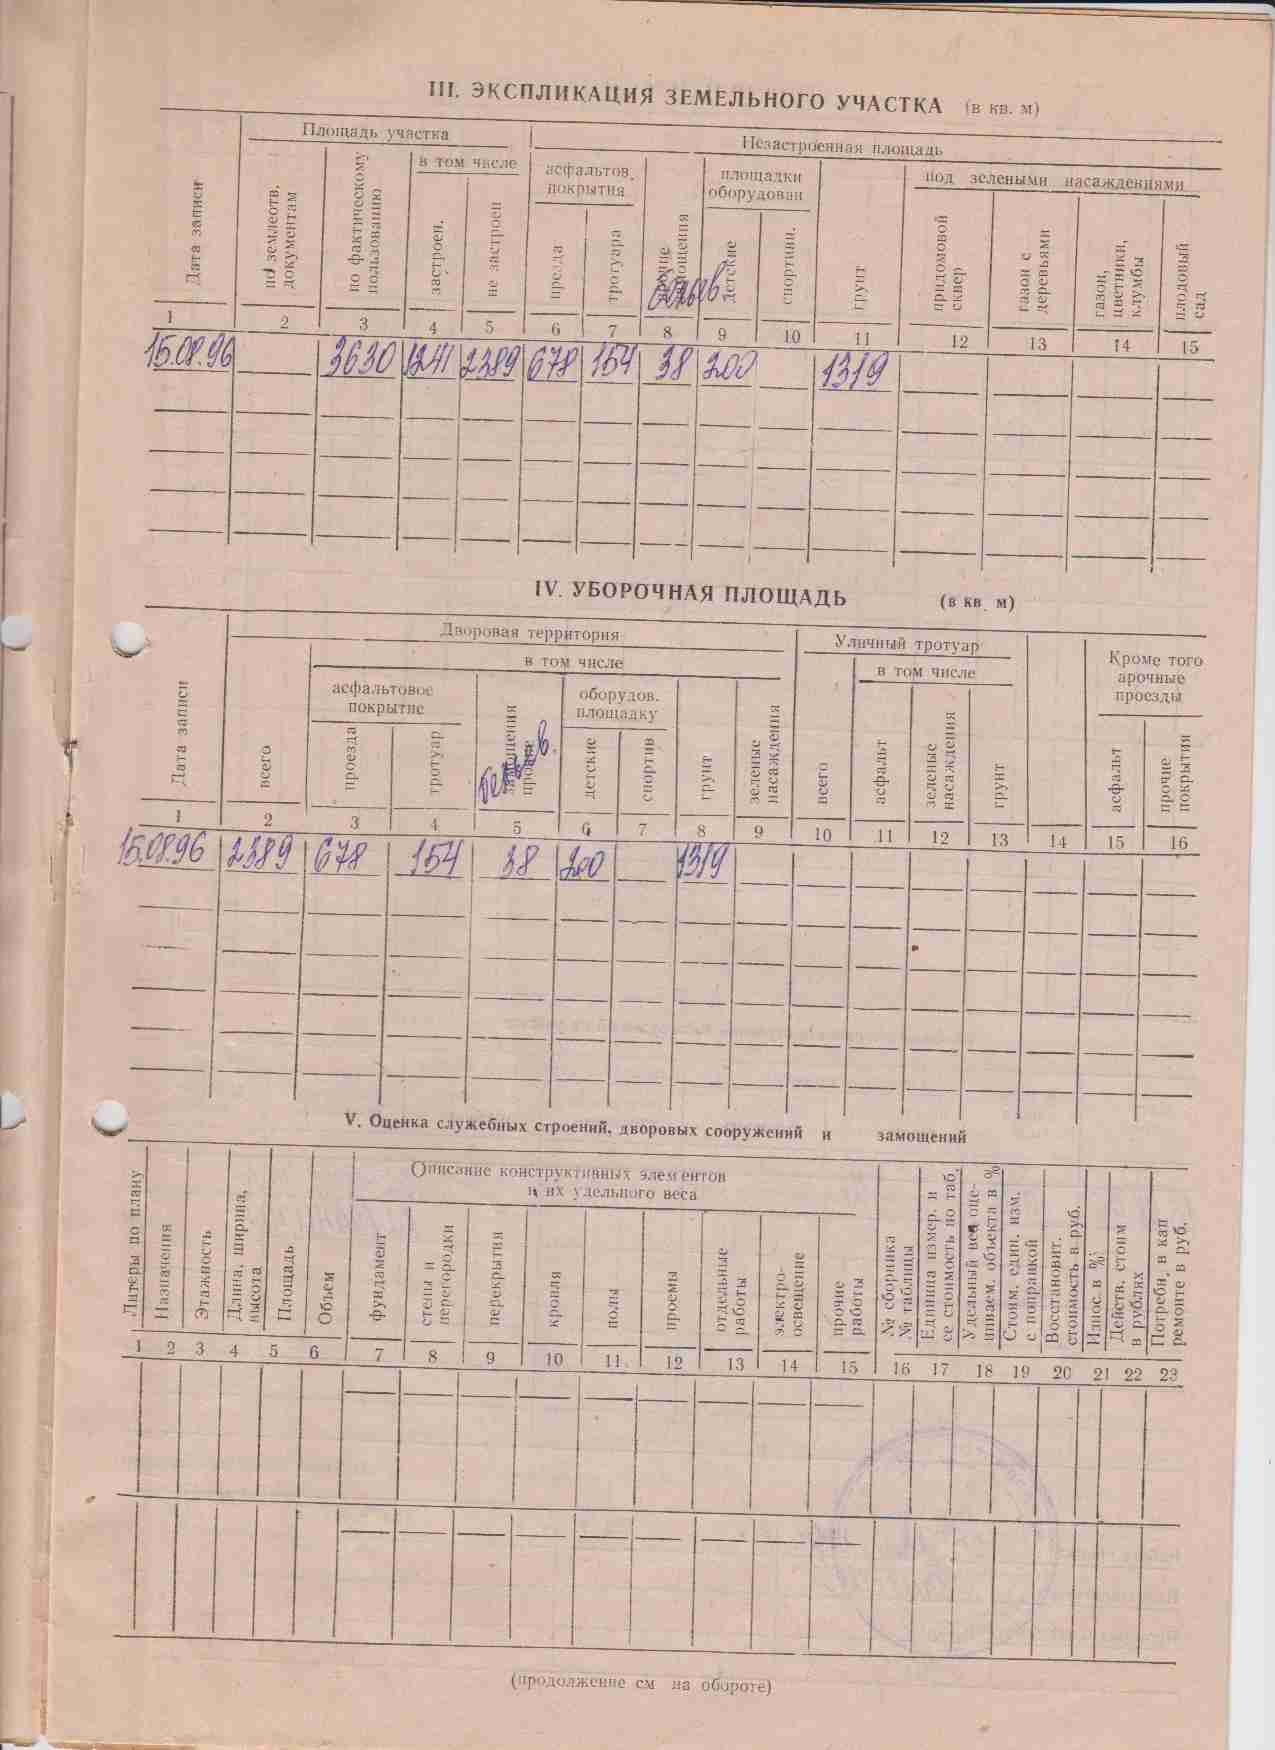 III. ЭКСПЛИКАЦИЯ ЗЕМЕЛЬНОГО УЧАСТКА (в кв. м)
Дата записи
Площадь участка
по землеотв. документам
по фактическому пользованию
в том числе
застроен.
не застроен
Незастроенная площадь
асфальтов. покрытия
проезда
тротуара
прочие замощения
площадки оборудован
детские
спортивн.
грунт
под зелеными насаждениями
придомовой сквер
газон с деревьями
газон, цветники, клумбы
плодовый сад
1 2 3 4 5 6 7 8 9 10 11 12 13 14 15
15.08.96 3630 1241 2389 678 154 38 200 1319
IV. УБОРОЧНАЯ ПЛОЩАДЬ (в кв. м)
Дата записи
Дворовая территория
всего
в том числе
асфальтовое покрытие
проезда
тротуар
замощения прочие
оборудов. площадку
детские
спортив
грунт
зеленые насаждения
Уличный тротуар
всего
в том числе
асфальт
зеленые насаждения
грунт
Кроме того арочные проезды
асфальт
прочие покрытия
1 2 3 4 5 6 7 8 9 10 11 12 13 14 15 16
15.08.96 2389 678 154 38 200 1319
V. Оценка служебных строений, дворовых сооружений и замощений
Литеры по плану
Назначения
Этажность
Длина, ширина, высота
Площадь
Объем
Описание конструктивных элементов
и их удельного веса
фундамент
стены и перегородки
перекрытия
кровля
полы
проемы
отдельные работы
электро-освещение
прочие работы
№ сборника № таблицы
Единица измер. и ее стоимость по таб.
Удельный вес оце-ниваем. объекта в %
Стоим. един. изм. с поправкой
Восстановит. стоимость в руб.
Износ. в %
Действ. стоим в рублях
Потребн. в кап ремонте в руб.
1 2 3 4 5 6 7 8 9 10 11 12 13 14 15 16 17 18 19 20 21 22 23
(продолжение см на обороте)